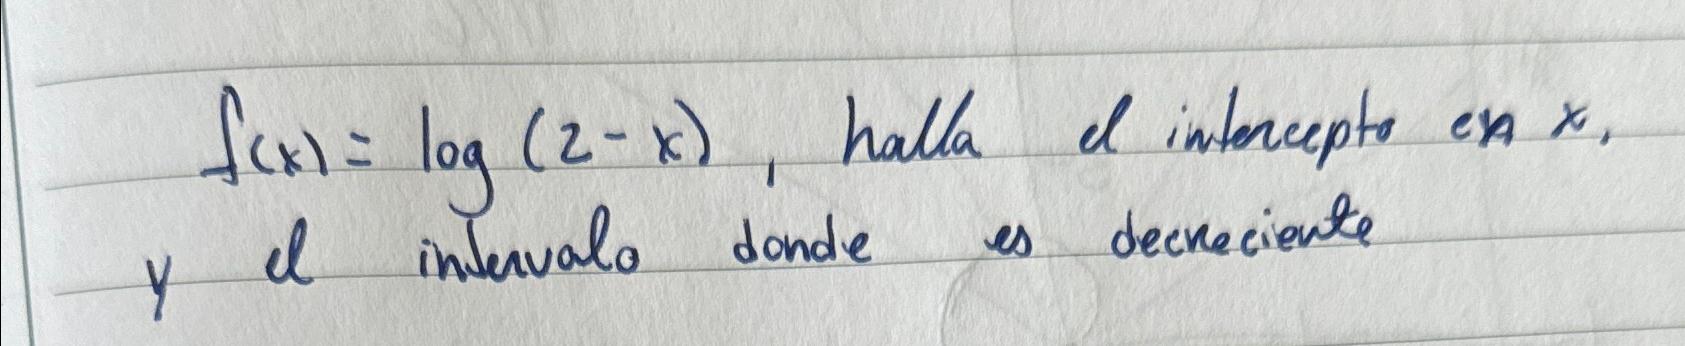 f(x) = log (2-x), halla el intercepto en x,
y el intervalo donde es decreciente